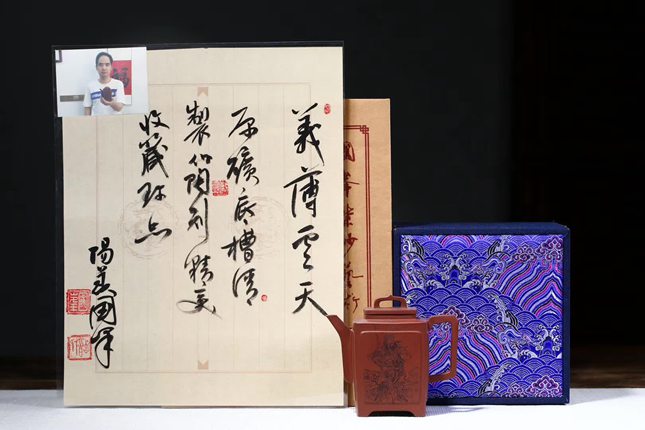 義薄雲天
原礦底槽清
製作陶刻精美
收藏珍品
陽羨國
紫砂藝術